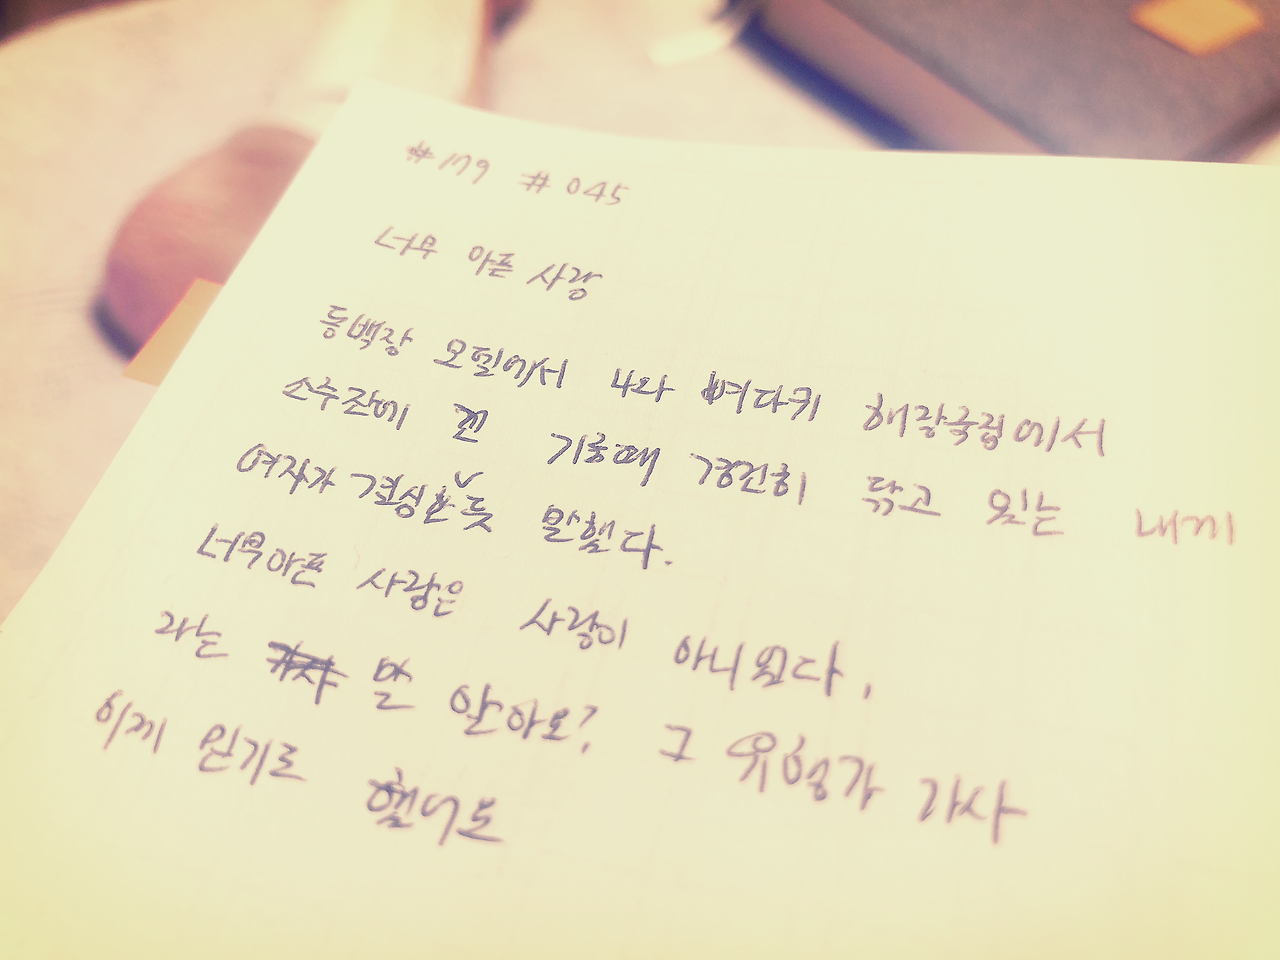 #179 #045
너무 아픈 사랑
동백장 모텔에서 나와 뼈다귀 해장국집에서
소주잔에 낀 기름때 경건히 닦고 있는 내게
여자가 결심한 듯 말했다.
너무 아픈 사랑은 사랑이 아니었다,
라는 말 알아요? 그 유행가 가사
이제 믿기로 했어요